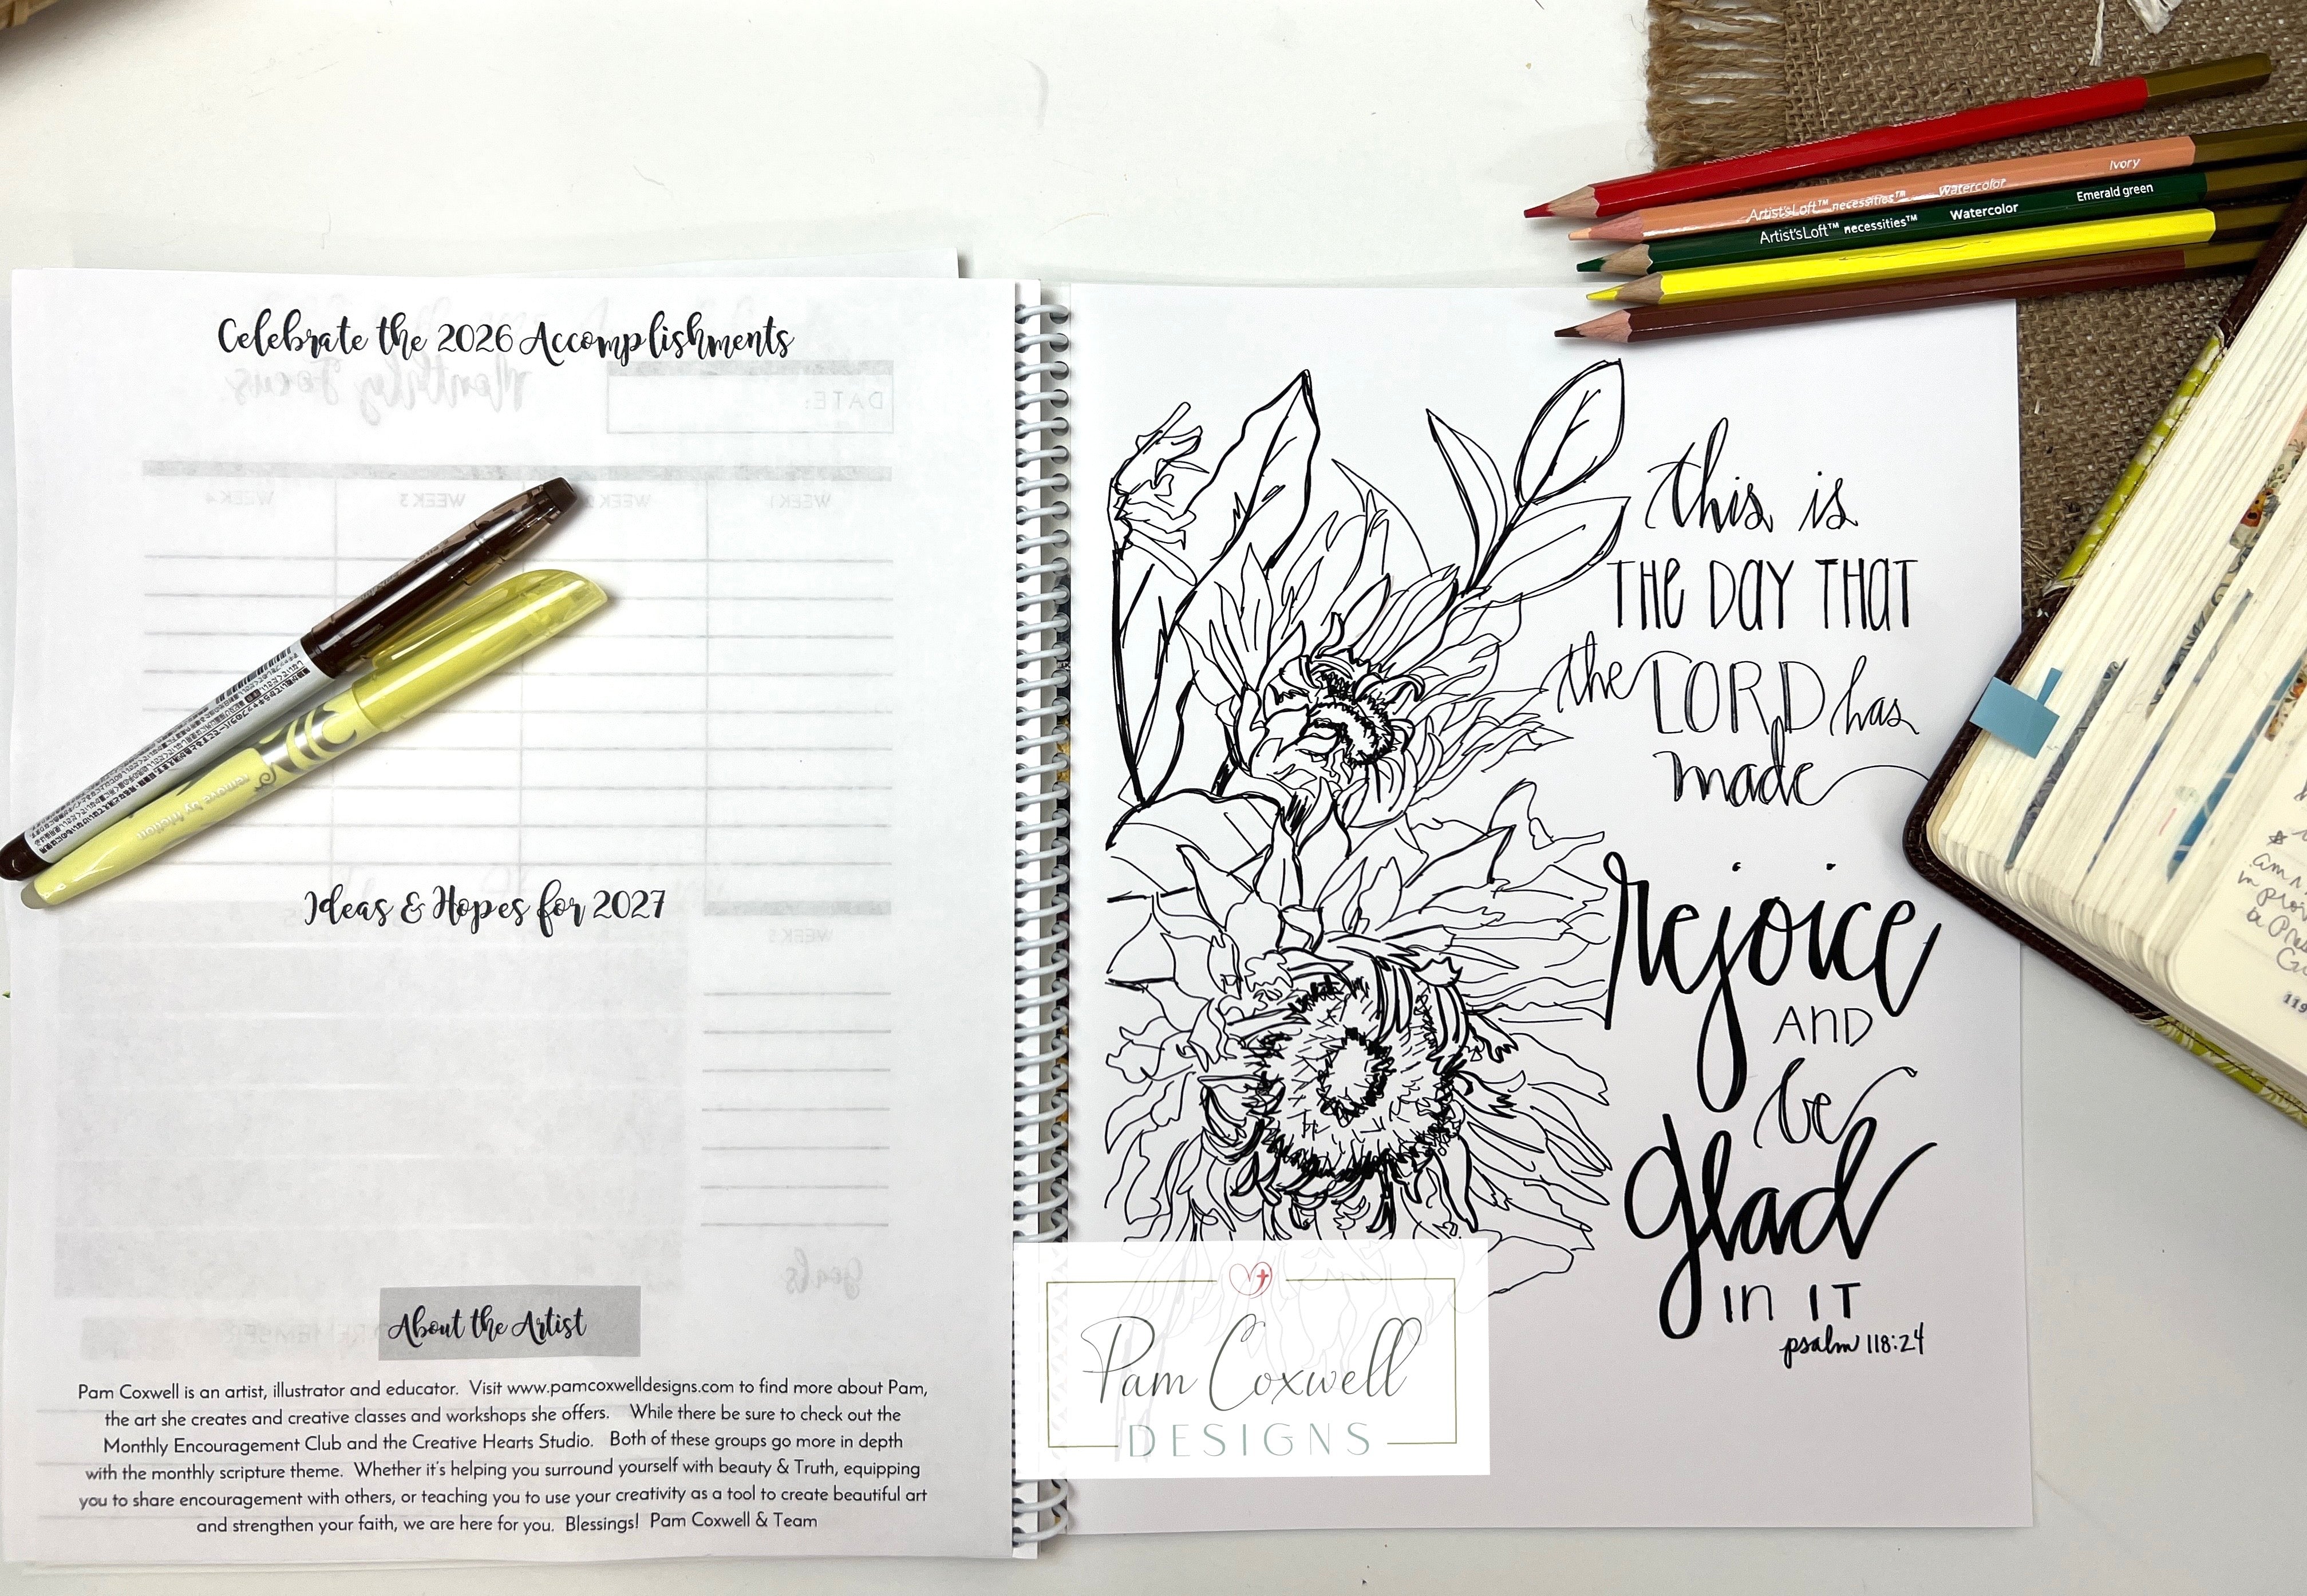 Celebrate the 2026 Accomplishments
Monthly Focus
DATE:
WEEK 1
WEEK 3
WEEK 4
remove by friction
Ideas & Hopes for 2027
WEEK 5
Goals
About the Artist
Pam Coxwell is an artist, illustrator and educator. Visit www.pamcoxwelldesigns.com to find more about Pam,
the art she creates and creative classes and workshops she offers. While there be sure to check out the
Monthly Encouragement Club and the Creative Hearts Studio. Both of these groups go more in depth
with the monthly scripture theme. Whether it's helping you surround yourself with beauty & Truth, equipping
you to share encouragement with others, or teaching you to use your creativity as a tool to create beautiful art
and strengthen your faith, we are here for you. Blessings! Pam Coxwell & Team
this is
THE DAY THAT
the LORD has
made
rejoice
AND
be
glad
in IT
psalm 118:24
Pam Coxwell
DESIGNS
Artist'sLoft™ necessities™ Watercolor Ivory
Artist'sLoft™ necessities™ Watercolor Emerald green